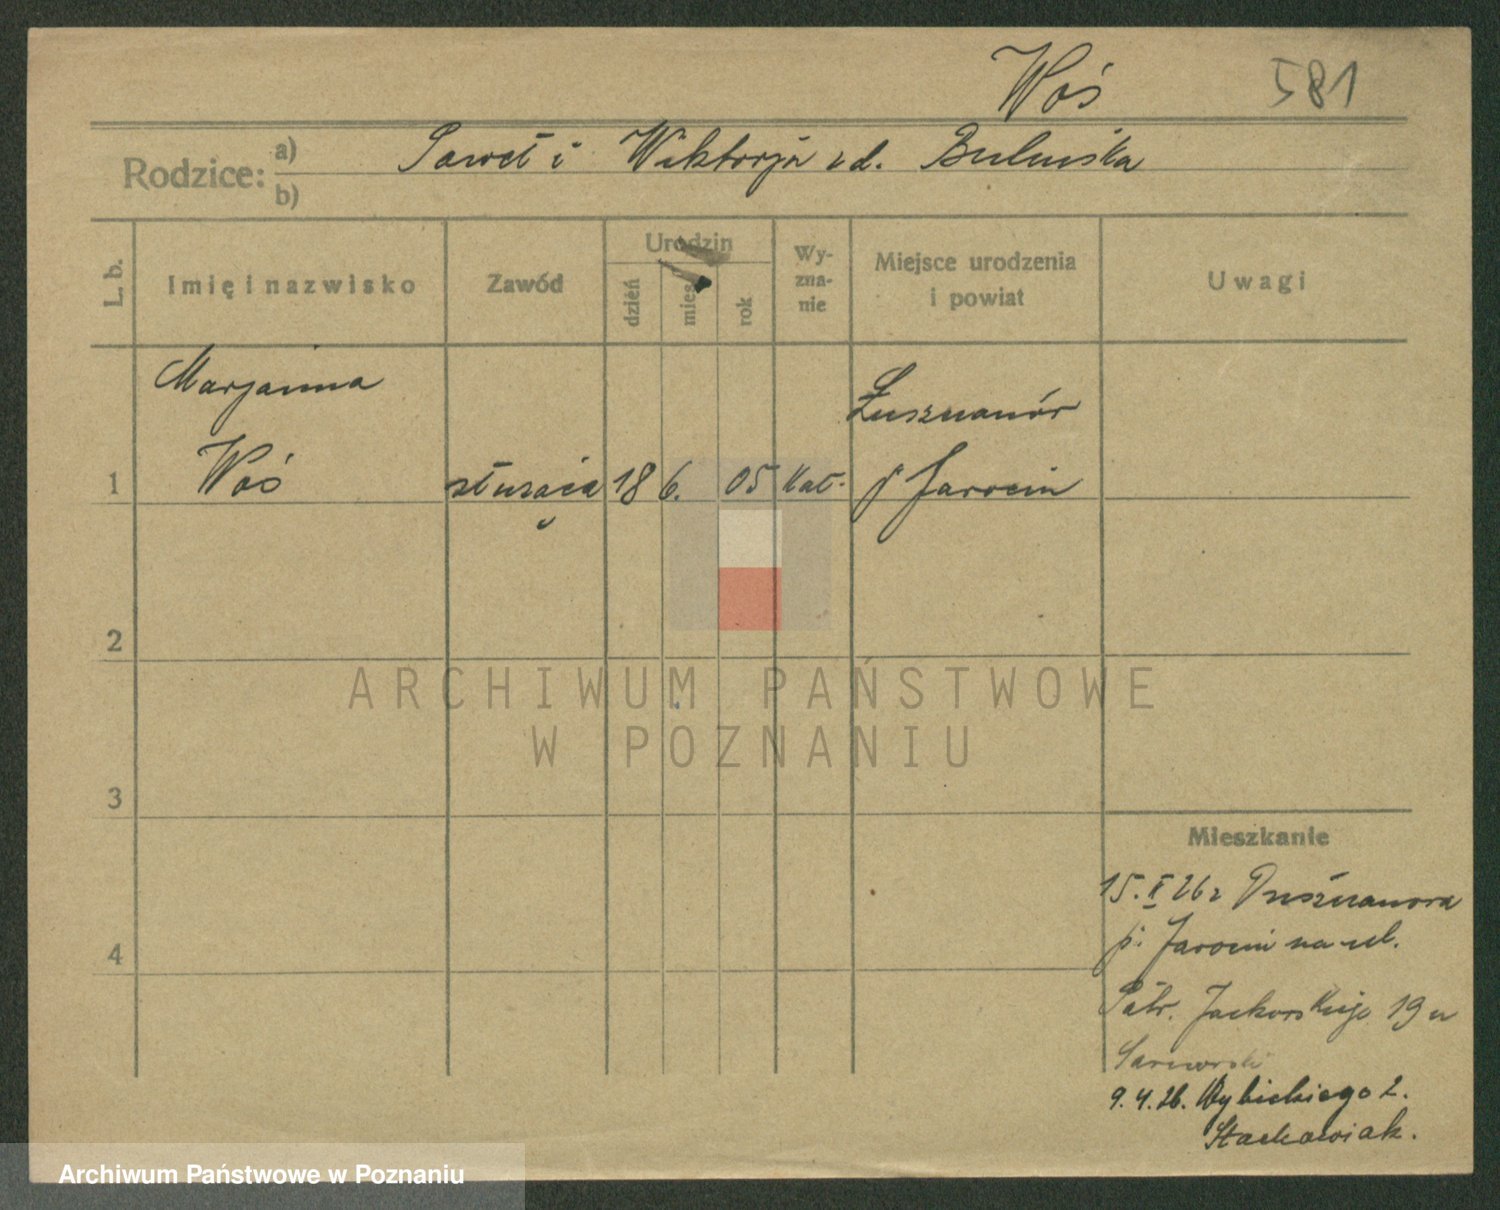 Woś 581
Rodzice: a) Paweł i Wiktorja zd.
b)
L. b.
Imię i nazwisko
Zawód
Urodzin
dzień
mies
rok
Wy-
zna-
nie
Miejsce urodzenia
i powiat
Uwagi
Marjanna
Woś
1 służąca 18 6. 05 Kat. p Jarocin
2
3
4
Mieszkanie
15. 26 r
p. Jarocin na ul.
Patr. Jackowskiego 19 u
9. 4. 26. Wybickiego 2.
Stachowiak.
ARCHIWUM PAŃSTWOWE
W POZNANIU
Archiwum Państwowe w Poznaniu